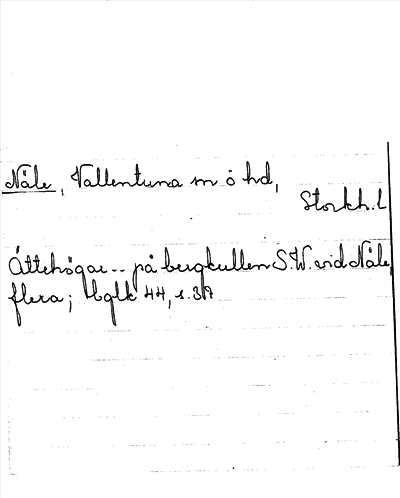 Nåle, Vallentuna sn o hd,
Stockh. l
Ättehögar.. på bergkullen S.W. vid Nåle,
flera; bglk 44, s. 37